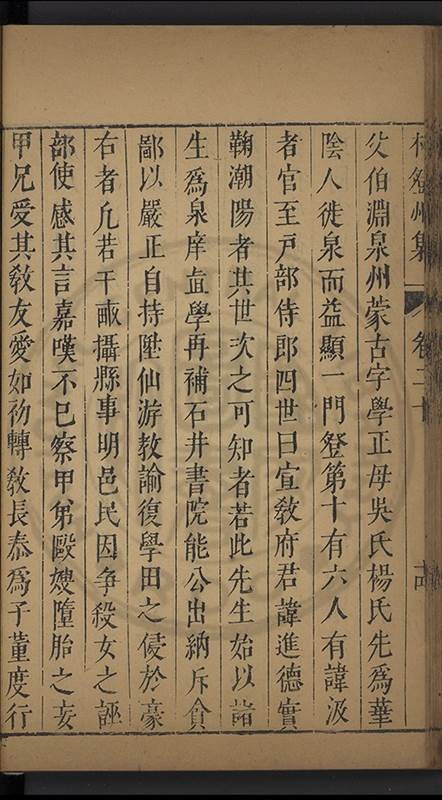 卷二十
父伯淵泉州蒙古字學正母吳氏楊氏先爲華
陰人徙泉而益顯一門登第十有六人有諱汲
者官至戸部侍郎四世曰宣教府君諱進德實
鞠潮陽者其世次之可知者若此先生始以諸
生爲泉庠直學再補石井書院能公出納斥貪
鄙以嚴正自持陞仙游教諭復學田之侵於豪
右者凢若干畝攝縣事明邑民因争殺女之誣
部使感其言嘉嘆不已察甲弟毆嫂墮胎之妄
甲兄受其教友愛如初轉教長泰爲子董度行